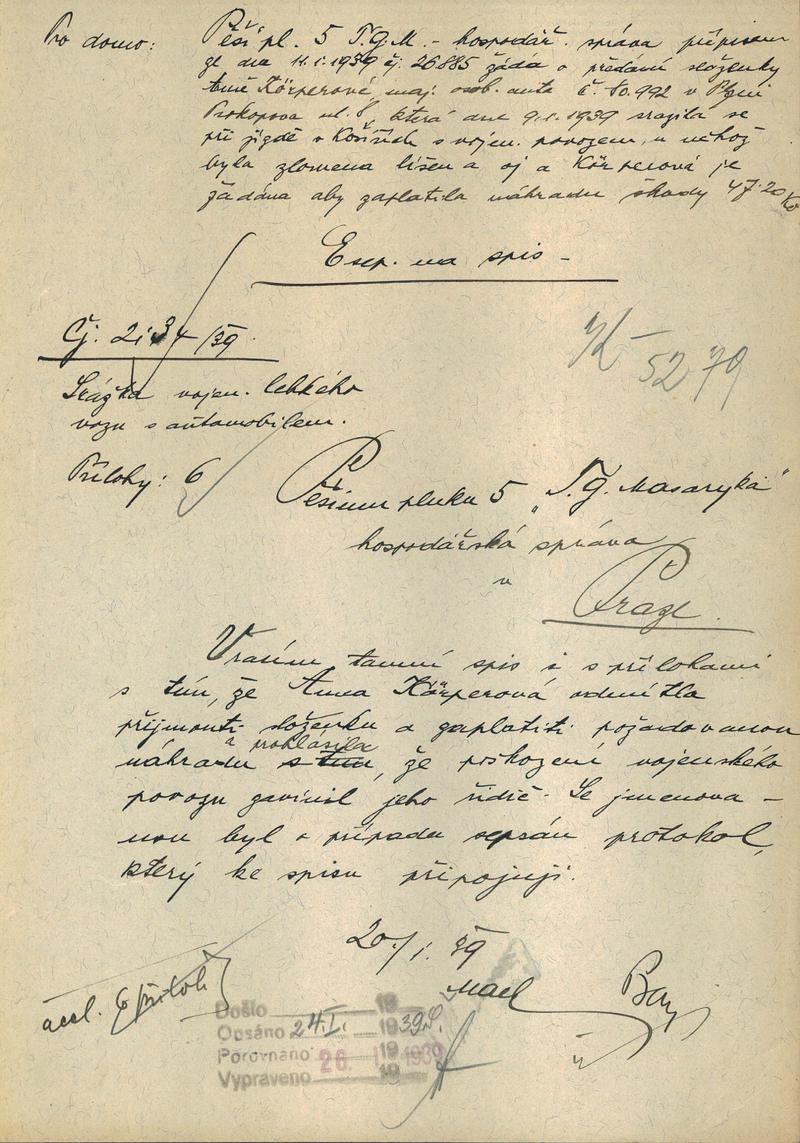 Pro domo: Pěší pl. 5 T.G.M. - hospodář. správa přípisem
ze dne 11.1.1939 čj. 26885 žádá o předání složenky
Anně Körperové, maj. osob. auta č. 10.992 v Plzni
Prokopova ul. 8, která dne 9.1.1939 srazila se
při jízdě v Košířích s vojen. povozem, u něhož
byla zlomena líšeň a oj a Körperová je
žádána aby zaplatila náhradu škody 47.20 Kč
Exp. na spis -
Čj. 2134/39.
Srážka vojen. lehkého
vozu s automobilem.
Přílohy: 6
52 79
Pěšímu pluku 5 „T.G. Masaryka“
hospodářská správa
v
Praze.
Vracím tamní spis i s přílohami
s tím, že Anna Körperová odmítla
přijmouti složenku a zaplatiti požadovanou
náhradu s tím a prohlásila, že poškození vojenského
povozu zavinil jeho řidič. Se jmenova-
nou byl o případu sepsán protokol,
který ke spisu připojuji.
20./1. 39
accl. 6 příloh
Došlo 19
Opsáno 24.I. 1939 S.
Porovnáno 26. 1939
Vypraveno 19